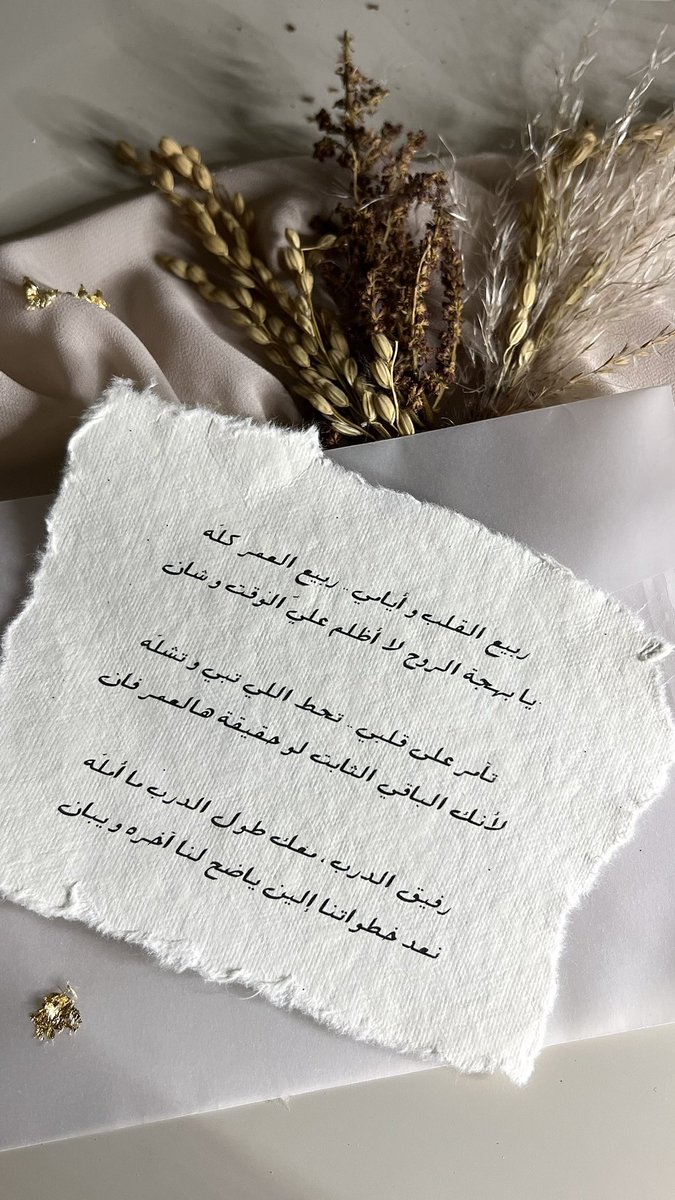 ربيع القلب و أيامي .. ربيع العمر كلّه
يا بهجة الروح لا أظلم عليّ الوقت و شان
تآمر على قلبي .. تحط اللي تبي و تشلّه
لأنك الباقي الثابت لو حقيقة هالعمر فان
رفيق الدرب ، معك طول الدرب ما أملّه
نعد خطواتنا إلين ياضح لنا آخره و يبان